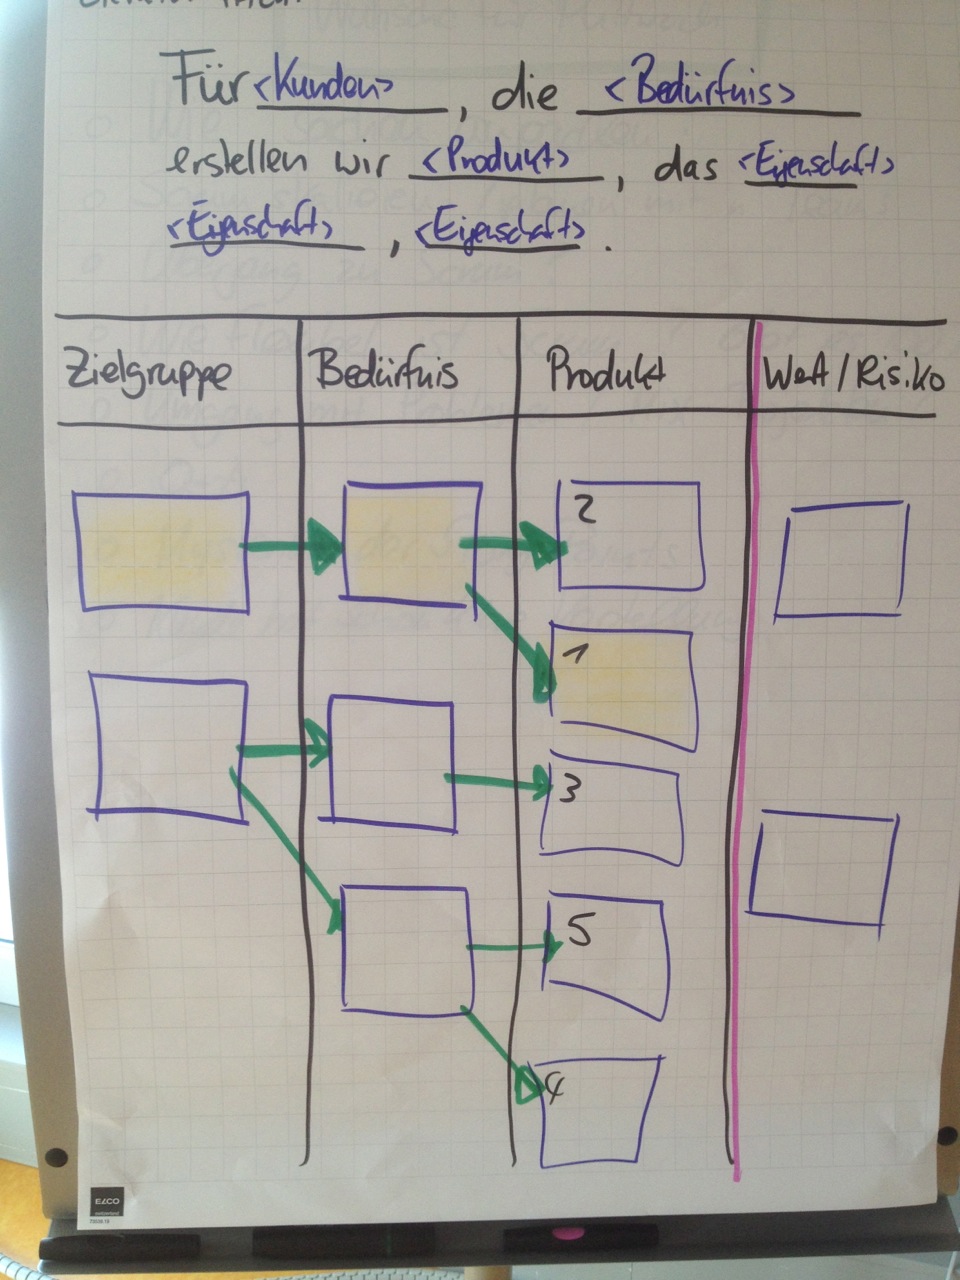 Für <Kunden>, die <Bedürfnis>
erstellen wir <Produkt>, das <Eigenschaft>
<Eigenschaft>, <Eigenschaft>.
Zielgruppe Bedürfnis Produkt Wert/Risiko
2
1
3
5
4
ELCO